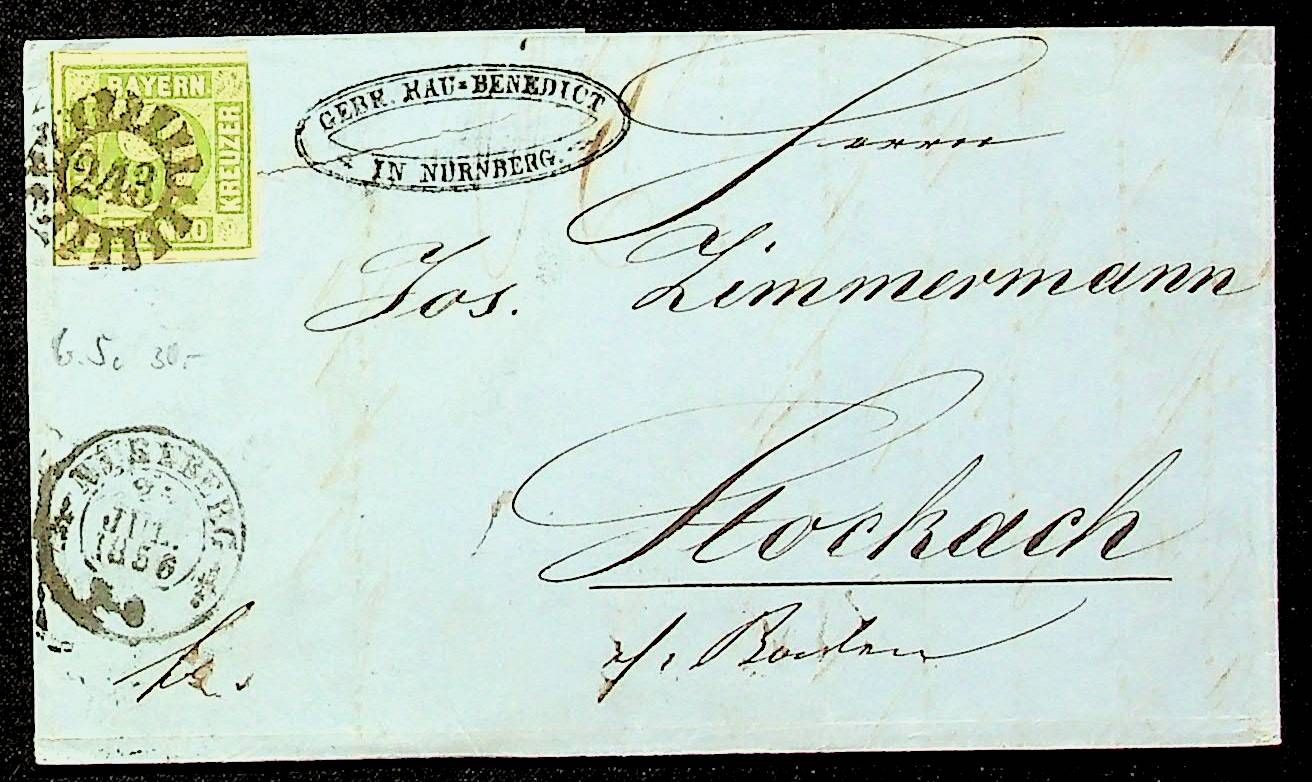 BAYERN
KREUZER
243
GEBR. HAU=BENEDICT
IN NÜRNBERG.
Herrn
Jos. Zimmermann
Stockach
i/: Baden
6.5c 30.-
NÜRNBERG
JUL.
1856